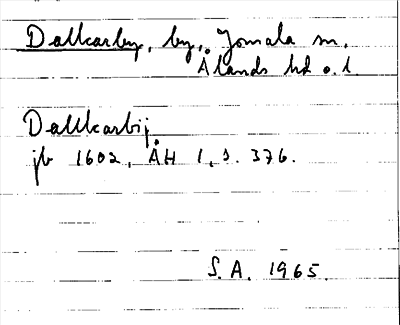 Dalkarby, by, Jomala sn,
Ålands hd o. l.
Dallkarbij
jb 1602, ÅH 1, s. 376.
S. A. 1965.